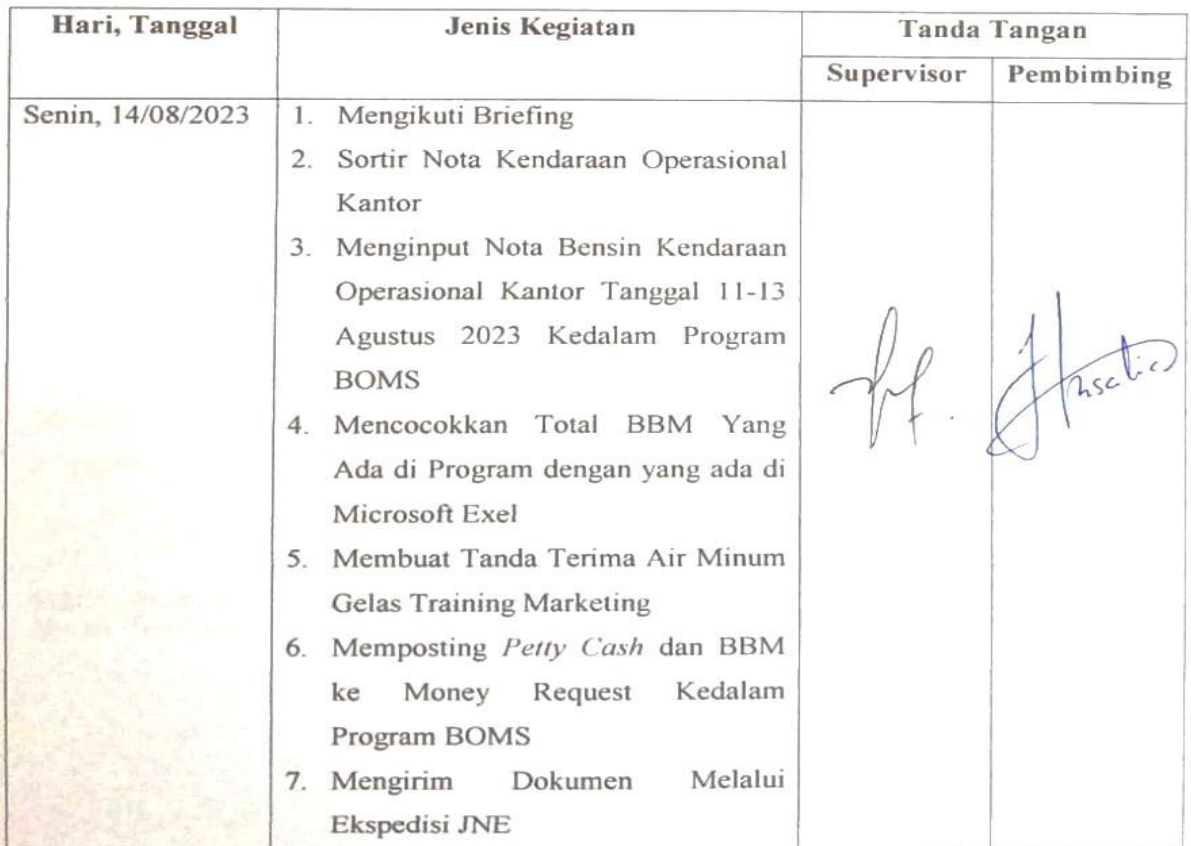 Hari, Tanggal
Jenis Kegiatan
Tanda Tangan
Supervisor
Pembimbing
Senin, 14/08/2023
1. Mengikuti Briefing
2. Sortir Nota Kendaraan Operasional
Kantor
3. Menginput Nota Bensin Kendaraan
Operasional Kantor Tanggal 11-13
Agustus 2023 Kedalam Program
BOMS
4. Mencocokkan Total BBM Yang
Ada di Program dengan yang ada di
Microsoft Exel
5. Membuat Tanda Terima Air Minum
Gelas Training Marketing
6. Memposting Petty Cash dan BBM
ke Money Request Kedalam
Program BOMS
7. Mengirim Dokumen Melalui
Ekspedisi JNE